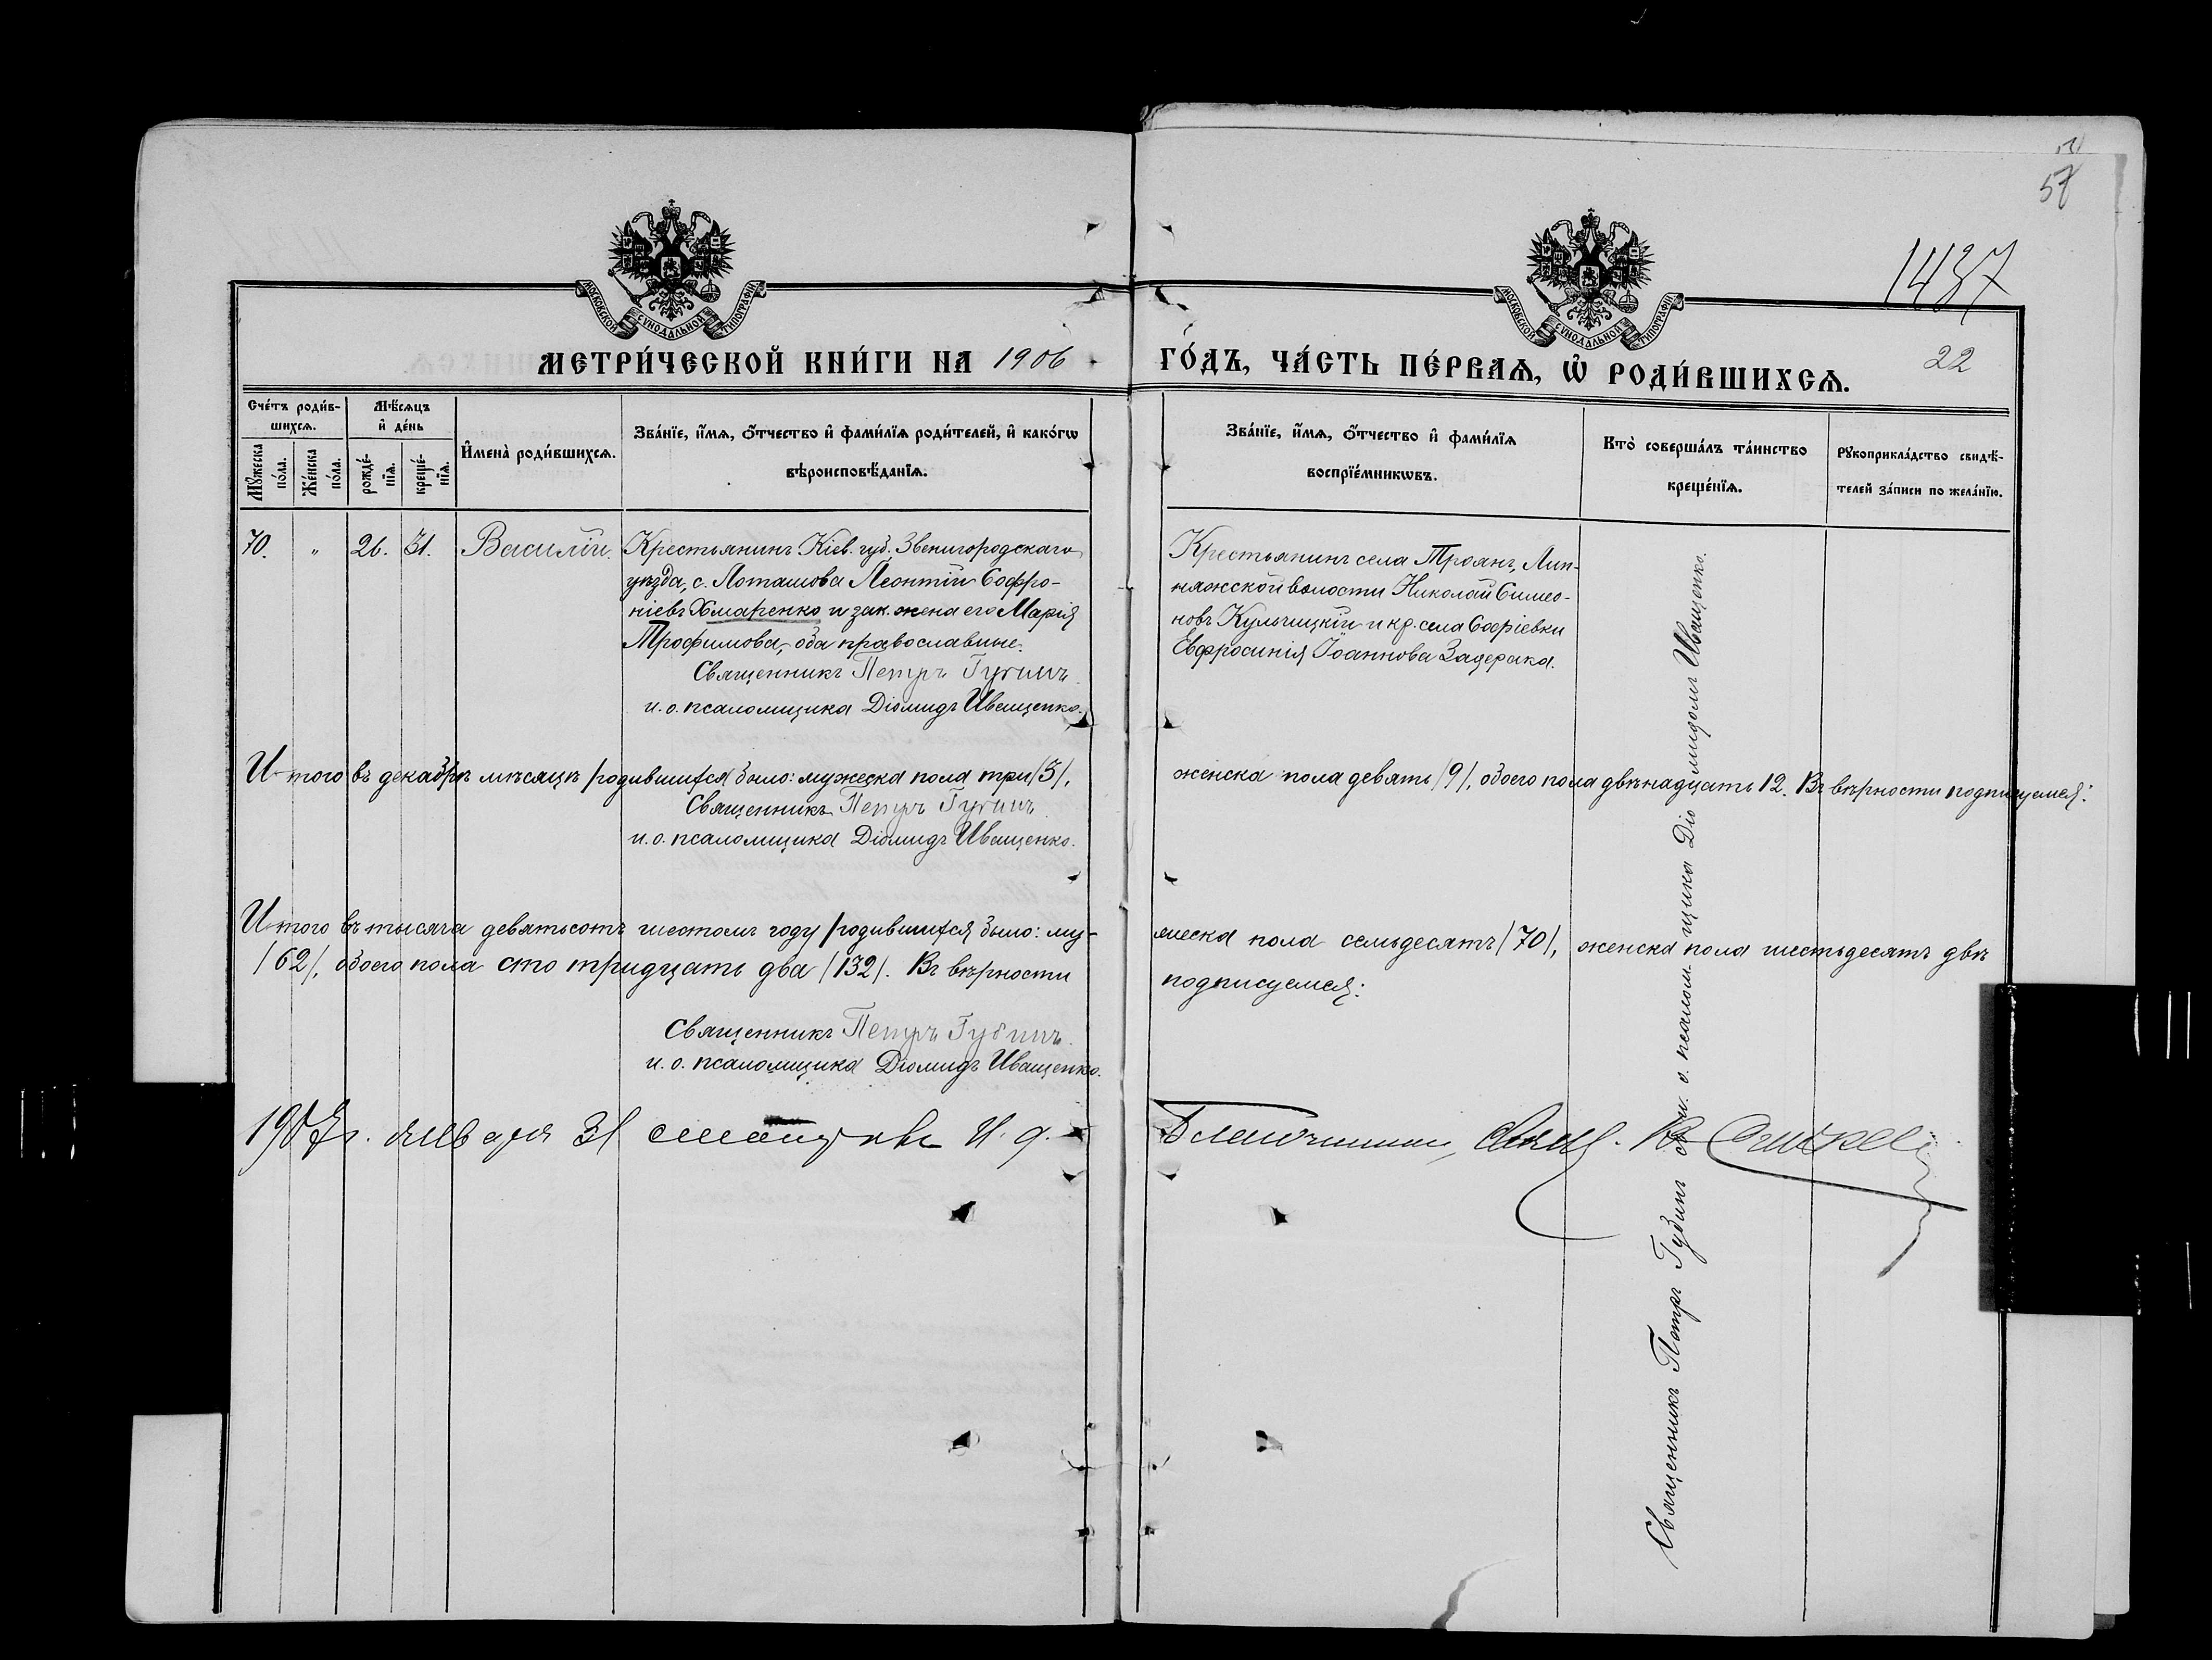 57
1437
МОСКОВСКОЙ СѴНОДАЛЬНОЙ ТИПОГРАФІИ
МОСКОВСКОЙ СѴНОДАЛЬНОЙ ТИПОГРАФІИ
МЕТРИ́ЧЕСКОЙ КНИ́ГИ НА 1906
ГО́ДЪ, ЧА́СТЬ ПЕ́РВАѦ, Ѡ҆ РОДИ́ВШИХСѦ.
22
Сче́тъ роди́в-
шихсѧ.
Мꙋ́жеска по́ла.
Же́нска по́ла.
Мѣ́сѧцъ
и҆ де́нь
рожде́-
нїѧ.
креще́-
нїѧ.
И҆мена̀ роди́вшихсѧ.
Зва́нїе, и҆́мѧ, ѻ҆́тчество и҆ фами́лїѧ роди́телей, и҆ како́гѡ
вѣроисповѣ́данїѧ.
Зва́нїе, и҆́мѧ, ѻ҆́тчество и҆ фами́лїѧ
воспрїе́мникѡвъ.
Кто̀ соверша́лъ та́инство
креще́нїѧ.
Рꙋкоприкла́дство свидѣ́-
телей за́писи по жела́нїю.
70.
"
26.
31.
Василій.
Крестьянинъ Кіев. губ. Звенигородскаго
уѣзда, с. Поташова Леонтій Софро-
ніевъ Хмаренко и зак. жена его Марія
Трофимова, оба православные.
Священникъ Петръ Губинъ
и. о. псаломщика Діомидъ Иващенко.
Крестьянинъ села Троянъ, Лип-
няжской волости Николай Симео-
новъ Кульчицкій и кр. села Софіевки
Евфросинія Іоаннова Задерака.
Священникъ Петръ Губинъ съ и. о. псалом-щика Діомидомъ Иващенко.
Итого въ декабрѣ мѣсяцѣ родившихся было: мужеска пола три /3/,
женска пола девять /9/, обоего пола двѣнадцать 12. Въ вѣрности подписуемся:
Священникъ Петръ Губинъ
и. о. псаломщика Діомидъ Иващенко.
Итого въ тысяча девятьсотъ шестомъ году родившихся было: му-
жеска пола семьдесятъ /70/, женска пола шестьдесятъ двѣ
/62/, обоего пола сто тридцать два /132/. Въ вѣрности
подписуемся:
Священникъ Петръ Губинъ
и. о. псаломщика Діомидъ Иващенко.
1907 г. января 31 смотрѣлъ И. д.
Благочиннаго, Свящ.